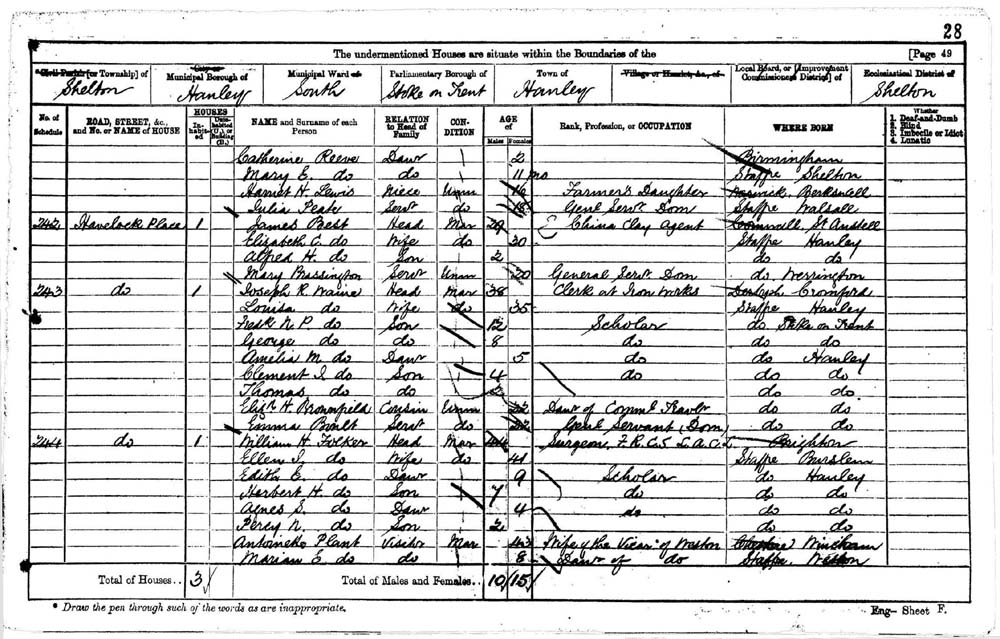 28
The undermentioned Houses are situate within the Boundaries of the [Page 49
Civil Parish [or Township] of Municipal Borough of Municipal Ward of Parliamentary Borough of Town of Village or Hamlet, &c., of Local Board, or [Improvement Commissioners District] of Ecclesiastical District of
Shelton Hanley South Stoke on Trent Hanley Shelton
No. of Schedule ROAD, STREET, &c., and No. or NAME of HOUSE HOUSES In-habit-ed Uninhabited (U.), or Building (B.) NAME and Surname of each Person RELATION to Head of Family CON-DITION AGE of Males Females Rank, Profession, or OCCUPATION WHERE BORN Whether 1. Deaf-and-Dumb 2. Blind 3. Imbecile or Idiot 4. Lunatic
Catherine Reeve Daur 2 Birmingham
Mary E. do do 11 mo Staffs Shelton
Harriet H. Lewis Niece Unm 16 Farmer's Daughter Warwick Berkswell
Julia Peate Servt do 18 Genl Servt Dom Staffs Walsall
242 Havelock Place 1 James Best Head Mar 29 China Clay Agent Cornwall St Austell
Elizabeth C. do Wife do 30 Staffs Hanley
Alfred H. do Son 2 do do
Mary Massington Servt Unm 20 General Servt Dom do Werrington
243 do 1 Joseph R. Waine Head Mar 38 Clerk at Iron Works Derbysh Cromford
Louisa do Wife do 35 Staffs Hanley
Fredk N. P. do Son 12 Scholar do Stoke on Trent
George do do 8 do do do
Amelia M. do Daur 5 do do Hanley
Clement J. do Son 4 do do do
Thomas do do 2 do do
Elizth H. Brownfield Cousin Unm 22 Daur of Comml Travlr do do
Emma Boult Servt do 22 Genl Servant (Dom) do do
244 do 1 William H. Folker Head Mar 44 Surgeon F.R.C.S L.A.C.L Brighton
Ellen J. do Wife do 41 Staffs Burslem
Edith E. do Daur 9 Scholar do Hanley
Herbert H. do Son 7 do do do
Agnes S. do Daur 4 do do do
Percy N. do Son 2 do do
Plant Visitor Mar 43 Wife of the Vicar of Weston Cheshire Wincham
Marian E. do do 8 Daur of do Staffs Weston
Total of Houses.. 3 Total of Males and Females.. 10 15
* Draw the pen through such of the words as are inappropriate. Eng- Sheet F.